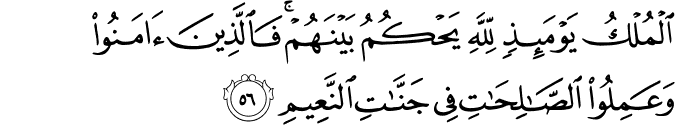 ٱلۡمُلۡكُ يَوۡمَئِذٖ لِّلَّهِ يَحۡكُمُ بَيۡنَهُمۡۚ فَٱلَّذِينَ ءَامَنُواْ
وَعَمِلُواْ ٱلصَّٰلِحَٰتِ فِي جَنَّٰتِ ٱلنَّعِيمِ ٥٦